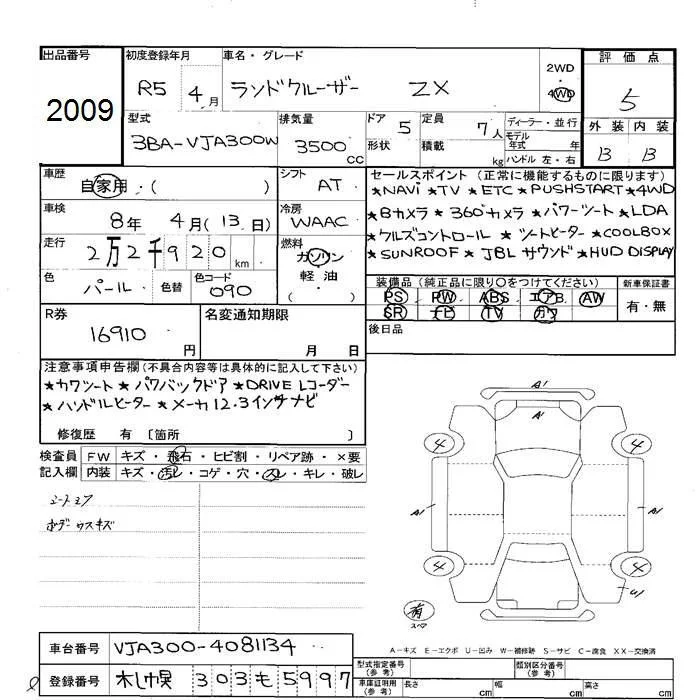 出品番号 初度登録年月 車名・グレード 評価点
2009 R5年 4月 ランドクルーザー ZX 2WD・4WD 5
型式 排気量 ドア 定員 ディーラー・並行 外装 内装
3BA-VJA300W 3500cc 5 7人 モデル年式 年 B B
形状 積載 kg ハンドル 左・右
車歴 シフト セールスポイント(正常に機能するものに限ります)
自家用・( ) AT ★NAVi ★TV ★ETC ★PUSHSTART ★4WD
車検 冷房 ★Bカメラ ★360°カメラ ★パワーシート ★LDA
8年 4月(13日) WAAC ★クルズコントロール ★シートヒーター ★COOLBOX
走行 燃料 ★SUNROOF ★JBL サウンド ★HUD DISPLAY
2万2千920km ガソリン
軽油
・( )
色 色替 色コード 装備品(純正品に限り○をつけてください) 新車保証書
パール 090 PS PW ABS エアB. AW 有・無
SR ナビ TV カワ
R券 名変通知期限 後日品
16910円 月 日
注意事項申告欄(不具合内容等は具体的に記入して下さい)
★カワシート ★パワバックドア ★DRIVE レコーダー
★ハンドルヒーター ★メーカ12.3インチナビ
修復歴 有 〔箇所 〕
検査員 FW キズ・飛石・ヒビ割・リペア跡・×要
記入欄 内装 キズ・汚レ・コゲ・穴・スレ・キレ・破レ
ボデーウスキズ
A1
A1
4 4
A1 A1
4 4
U1
有
スペア
A-キズ E-エクボ U-凹み W-補修跡 S-サビ C-腐食 XX-交換済
車台番号 VJA300-4081134 型式指定番号(参考) 類別区分番号(参考)
登録番号 303 も 5997 車庫証明用(参考) 長さ cm 幅 cm 高さ cm